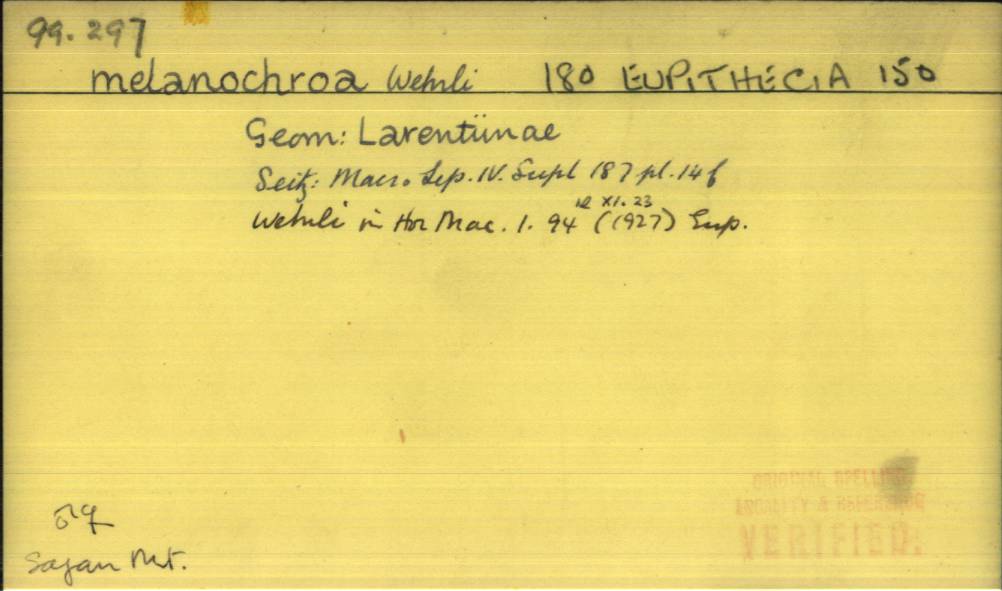 99.297
melanochroa Wehrli 180 EUPITHECIA 150
Geom: Larentiinae
Seitz: Macr. Lep. IV. Supl 187 pl. 14 f
XI. 23
Wehrli in Hor Mac. 1. 94 (1927) Eup.
♂♀
Sajan Mt.
ORIGINAL SPELLING
LOCALITY & REFERENCE
VERIFIED.